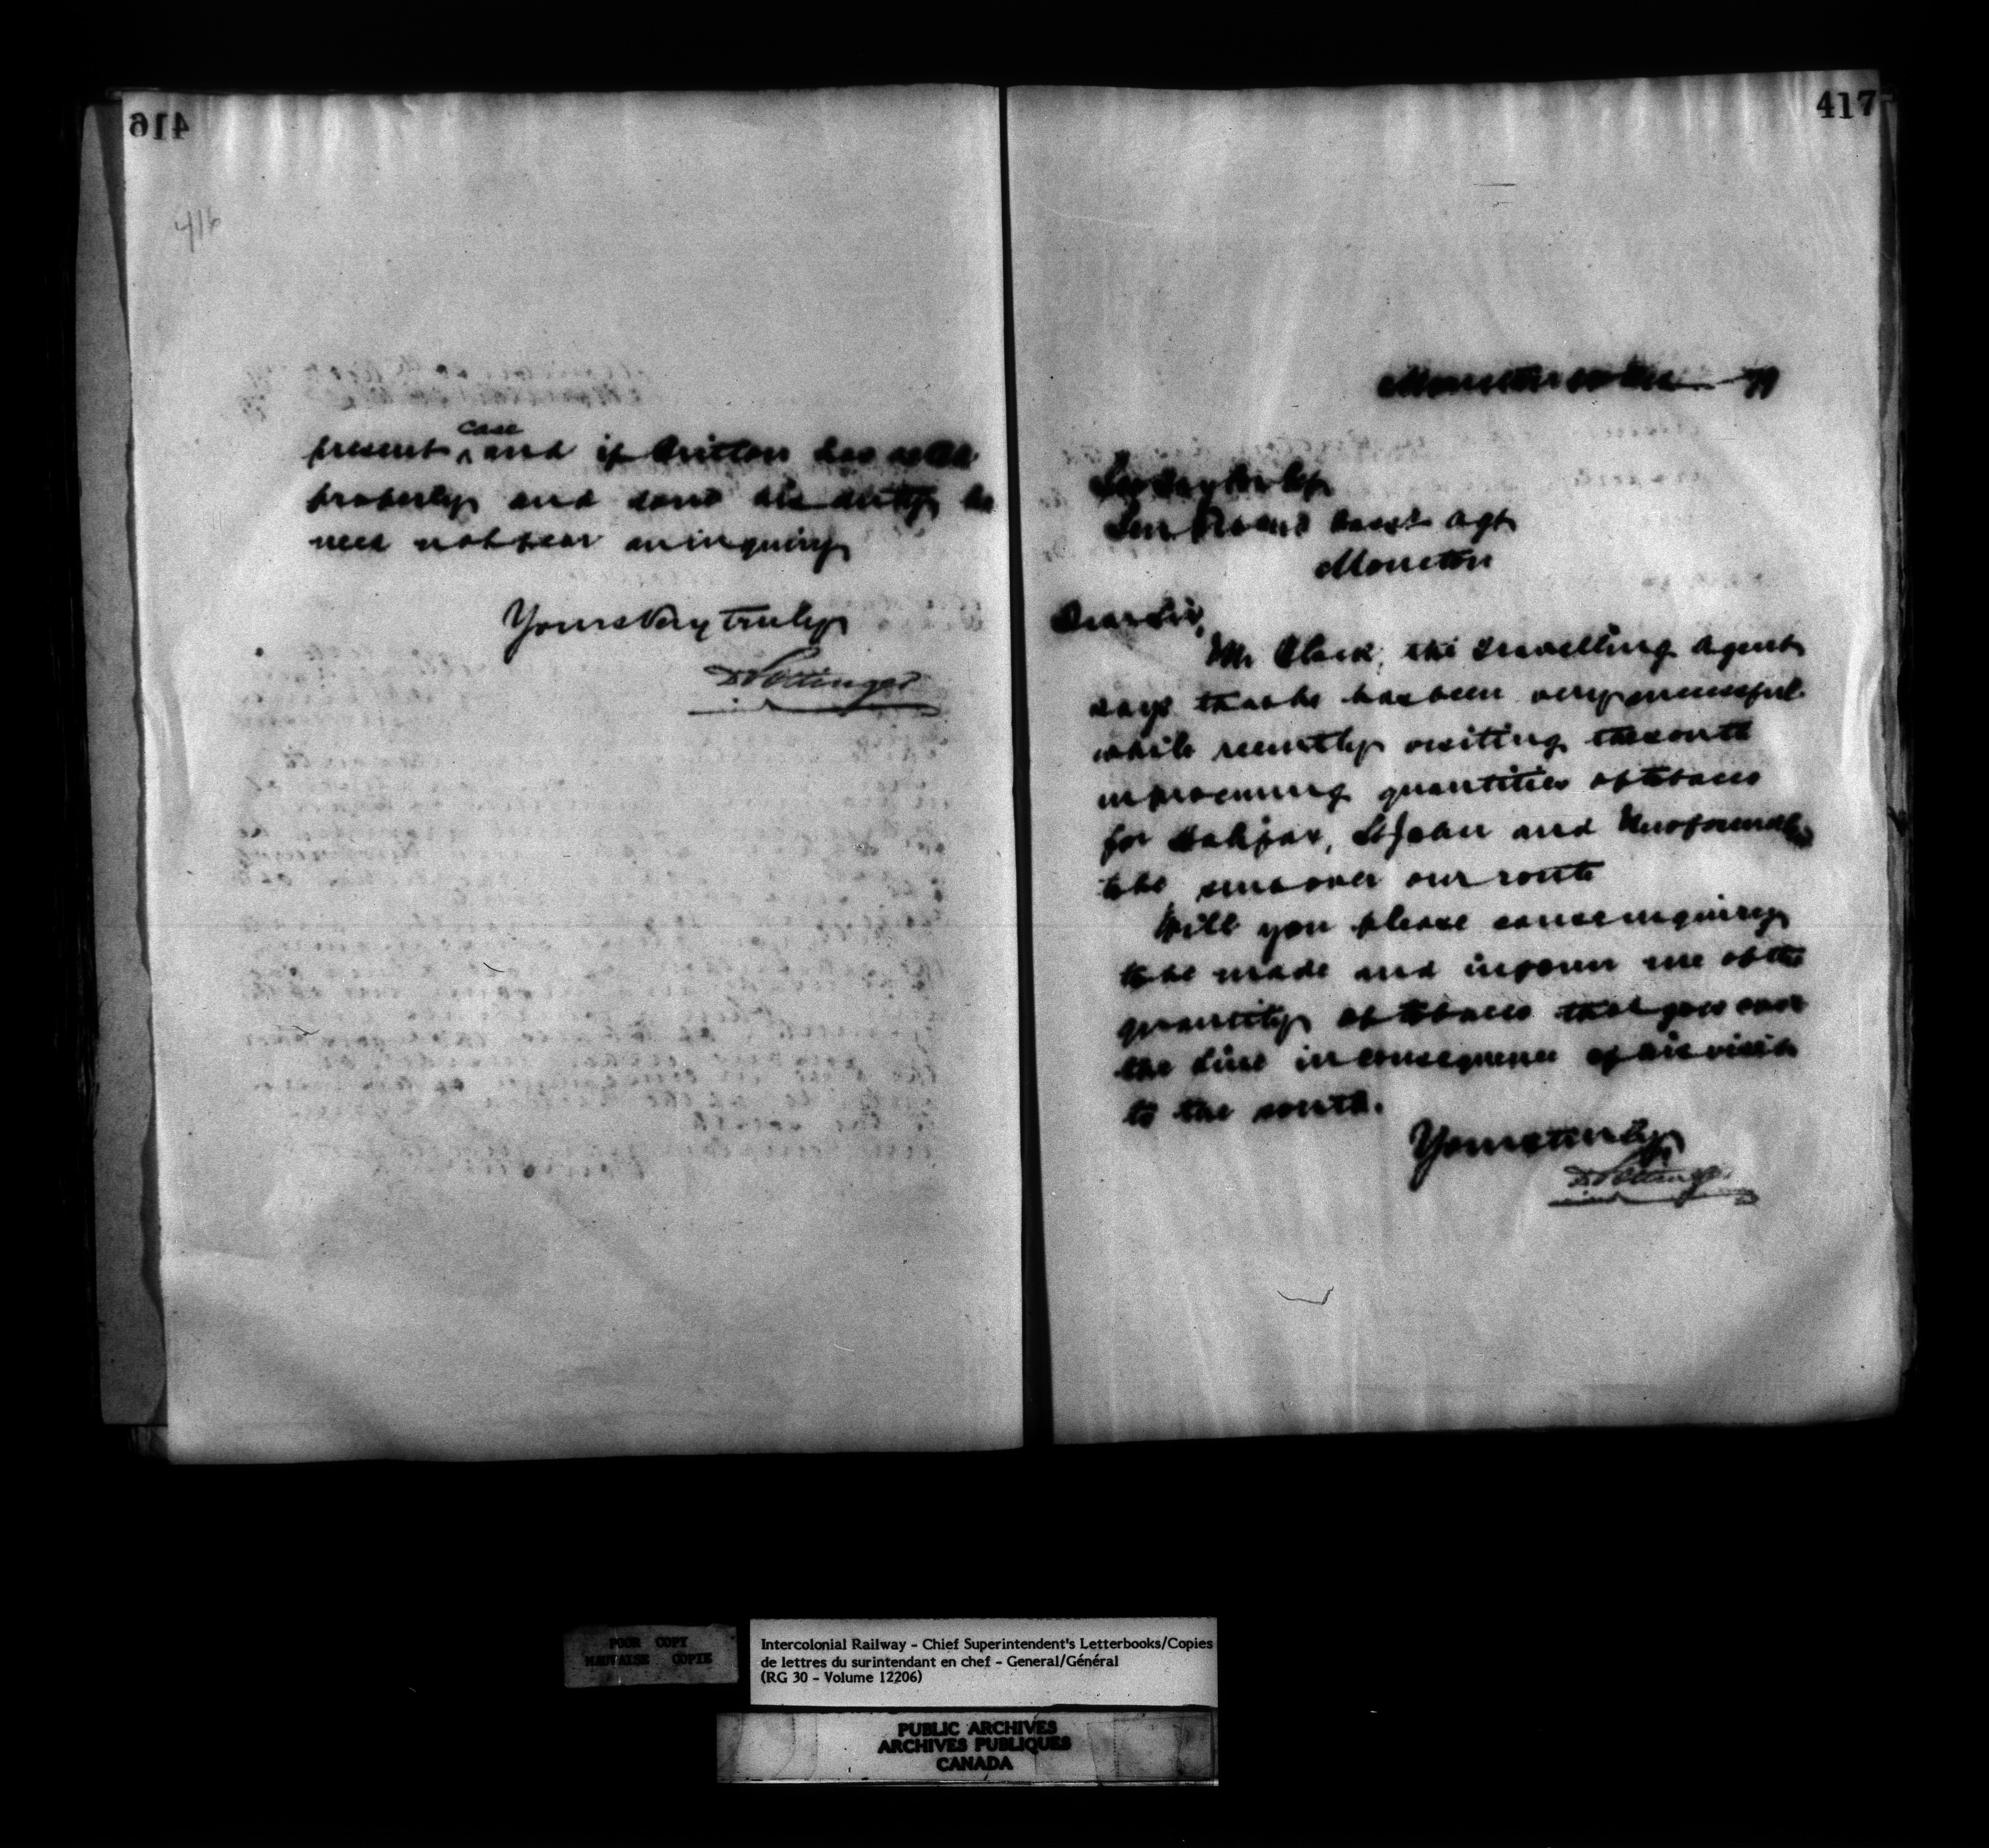 416
416
present case and if Britton has acted
properly and done his duty he
need not fear an inquiry
Yours very truly
D Pottinger
417
Moncton Dec 79
Geo Taylor Esq
Gen Freight Agt
Moncton
Dear Sir,
Mr Clark, the travelling agent
says that he has been very successful
while recently visiting the south
in procuring quantities of tobacco
for Halifax, St John and Newfoundld
to be sent over our route
Will you please cause inquiry
to be made and inform me of the
quantity of tobacco that goes over
the line in consequence of his visit
to the south.
Yours truly
D Pottinger
POOR COPY
MAUVAISE COPIE
Intercolonial Railway - Chief Superintendent's Letterbooks/Copies
de lettres du surintendant en chef - General/Général
(RG 30 - Volume 12206)
PUBLIC ARCHIVES
ARCHIVES PUBLIQUES
CANADA